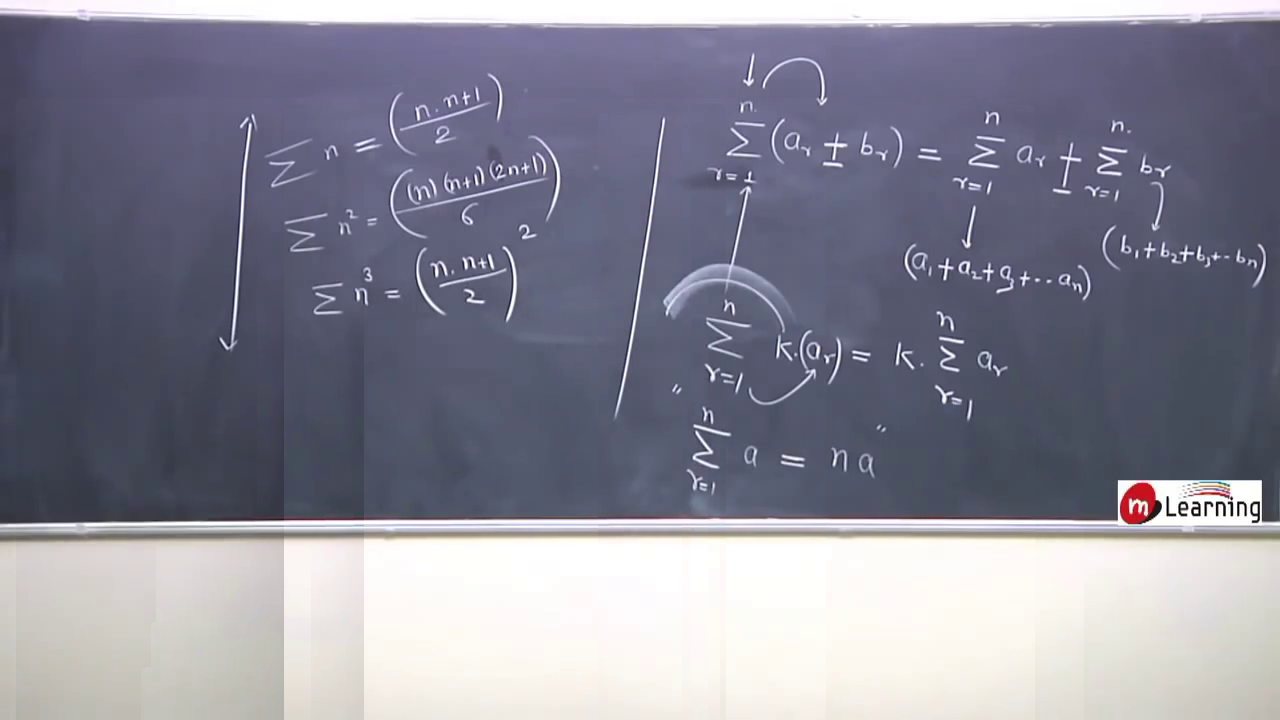 ∑ n = (n. n+1 / 2)
∑ n² = ((n) (n+1) (2n+1) / 6)
∑ n³ = (n. n+1 / 2)²
n. ∑ r=1 (aᵣ ± bᵣ) = n ∑ r=1 aᵣ ± n. ∑ r=1 bᵣ
(a₁ + a₂ + a₃ + ·· aₙ)
(b₁ + b₂ + b₃ + ·· bₙ)
n ∑ r=1 k.(aᵣ) = k. n ∑ r=1 aᵣ
" n ∑ r=1 a = na "
m Learning